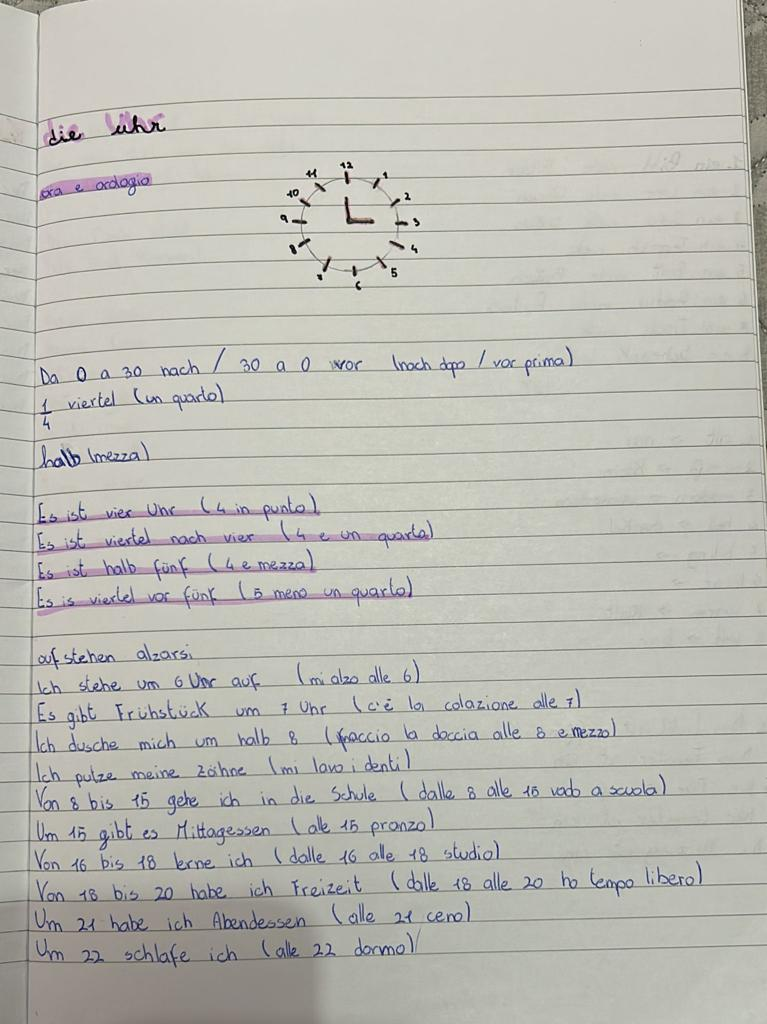 die Uhr
ora e orologio
12
11
1
10
2
9
3
8
4
7
5
6
Da 0 a 30 nach / 30 a 0 vor (nach dopo / vor prima)
1/4 viertel (un quarto)
halb (mezza)
Es ist vier Uhr (4 in punto)
Es ist viertel nach vier (4 e un quarto)
Es ist halb fünf (4 e mezza)
Es is viertel vor fünf (5 meno un quarto)
aufstehen alzarsi
Ich stehe um 6 Uhr auf (mi alzo alle 6)
Es gibt Frühstück um 7 Uhr (c'è la colazione alle 7)
Ich dusche mich um halb 8 (faccio la doccia alle 8 e mezzo)
Ich putze meine Zähne (mi lavo i denti)
Von 8 bis 15 gehe ich in die Schule (dalle 8 alle 15 vado a scuola)
Um 15 gibt es Mittagessen (alle 15 pranzo)
Von 16 bis 18 lerne ich (dalle 16 alle 18 studio)
Von 18 bis 20 habe ich Freizeit (dalle 18 alle 20 ho tempo libero)
Um 21 habe ich Abendessen (alle 21 ceno)
Um 22 schlafe ich (alle 22 dormo)